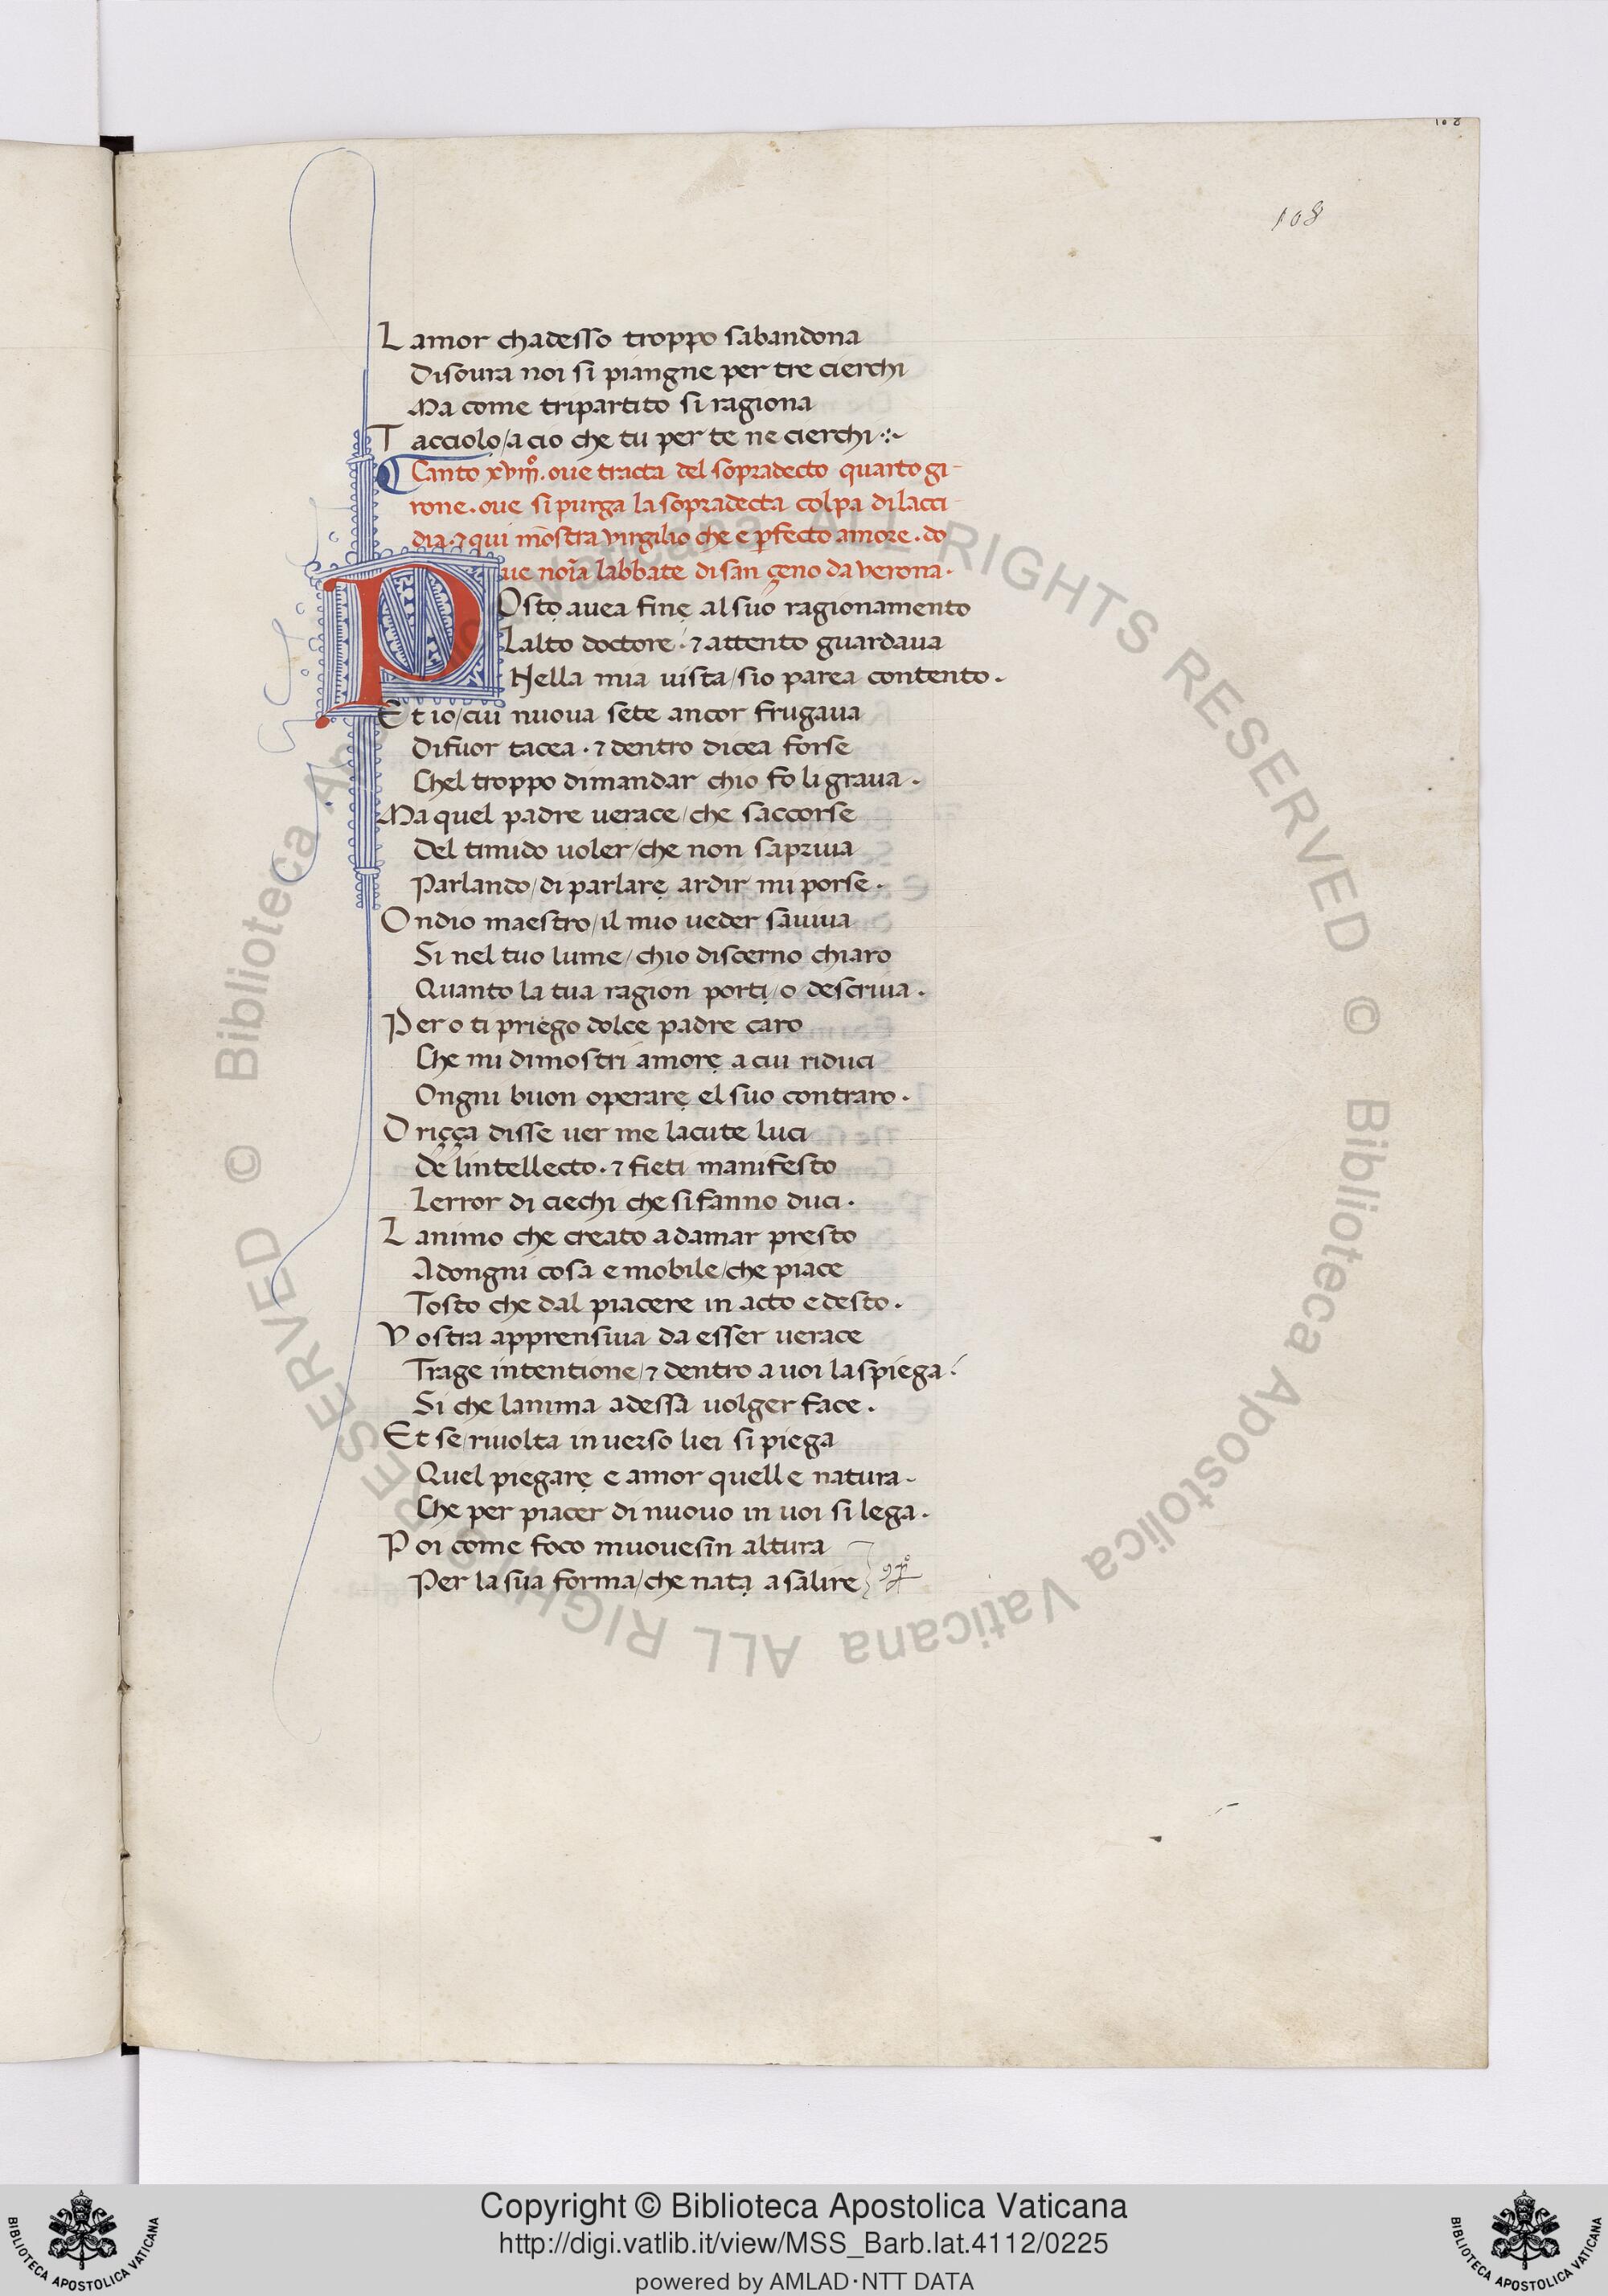 108
108
L amor chadesso troppo sabandona
Disoura noi si piangne per tre cierchi
Ma come tripartito si ragiona
T acciolọ/a cio che tu per te ne cierchi
Canto xviijº. oue tracta del sopradecto quarto gi-
rone. oue si purga la sopradecta colpa di lacci
dia. ⁊ qui mōstra virgilio che e ꝑfecto amore. do
ue noīa labbate di san çeno da verona.
POstọ auea finẹ al suo ragionamento
Lalto doctore. ⁊ attento guardaua
Nella mia uista/sio parea contento.
Et io/cui nuoua sete ancor frugaua
Difuor tacea. ⁊ dentro dicea forse
Chel troppo dimandar chio fo li graua.
Ma quel padre uerace/che saccorse
Del timido uoler/che non sapriua
Parlando/di parlarẹ ardir mi porse.
O ndio maestro/il mio ueder sauiua
Si nel tuo lume/chio discerno chiaro
Quanto la tua ragion portị/o descriua.
Pero ti priego dolce padre caro
Che mi dimostri amorẹ a cui riduci
Ongni buon operarẹ el suo contraro.
D riçça disse uer me lacute luci
De lintellecto. ⁊ fieti manifesto
Lerror di ciechi che si fanno duci.
L animo che creato adamar presto
Adongni cosa e mobile/che piace
Tosto che dal piacere in acto e desto.
V ostra apprensiua da esser uerace
Trage intentione/⁊ dentro a uoi la spiega.
Si che lanima adessa uolger face.
Et se/riuolta inuerso liei si piega
Quel piegarẹ e amor quell e natura.
Che per piacer di nuouo in uoi si lega.
P oi come foco muouesin altura
Per la sua forma/che natạ a salire
Copyright © Biblioteca Apostolica Vaticana
http://digi.vatlib.it/view/MSS_Barb.lat.4112/0225
powered by AMLAD·NTT DATA
BIBLIOTECA APOSTOLICA VATICANA
BIBLIOTECA APOSTOLICA VATICANA
© Biblioteca Apostolica Vaticana ALL RIGHTS RESERVED © Biblioteca Apostolica Vaticana ALL RIGHTS RESERVED